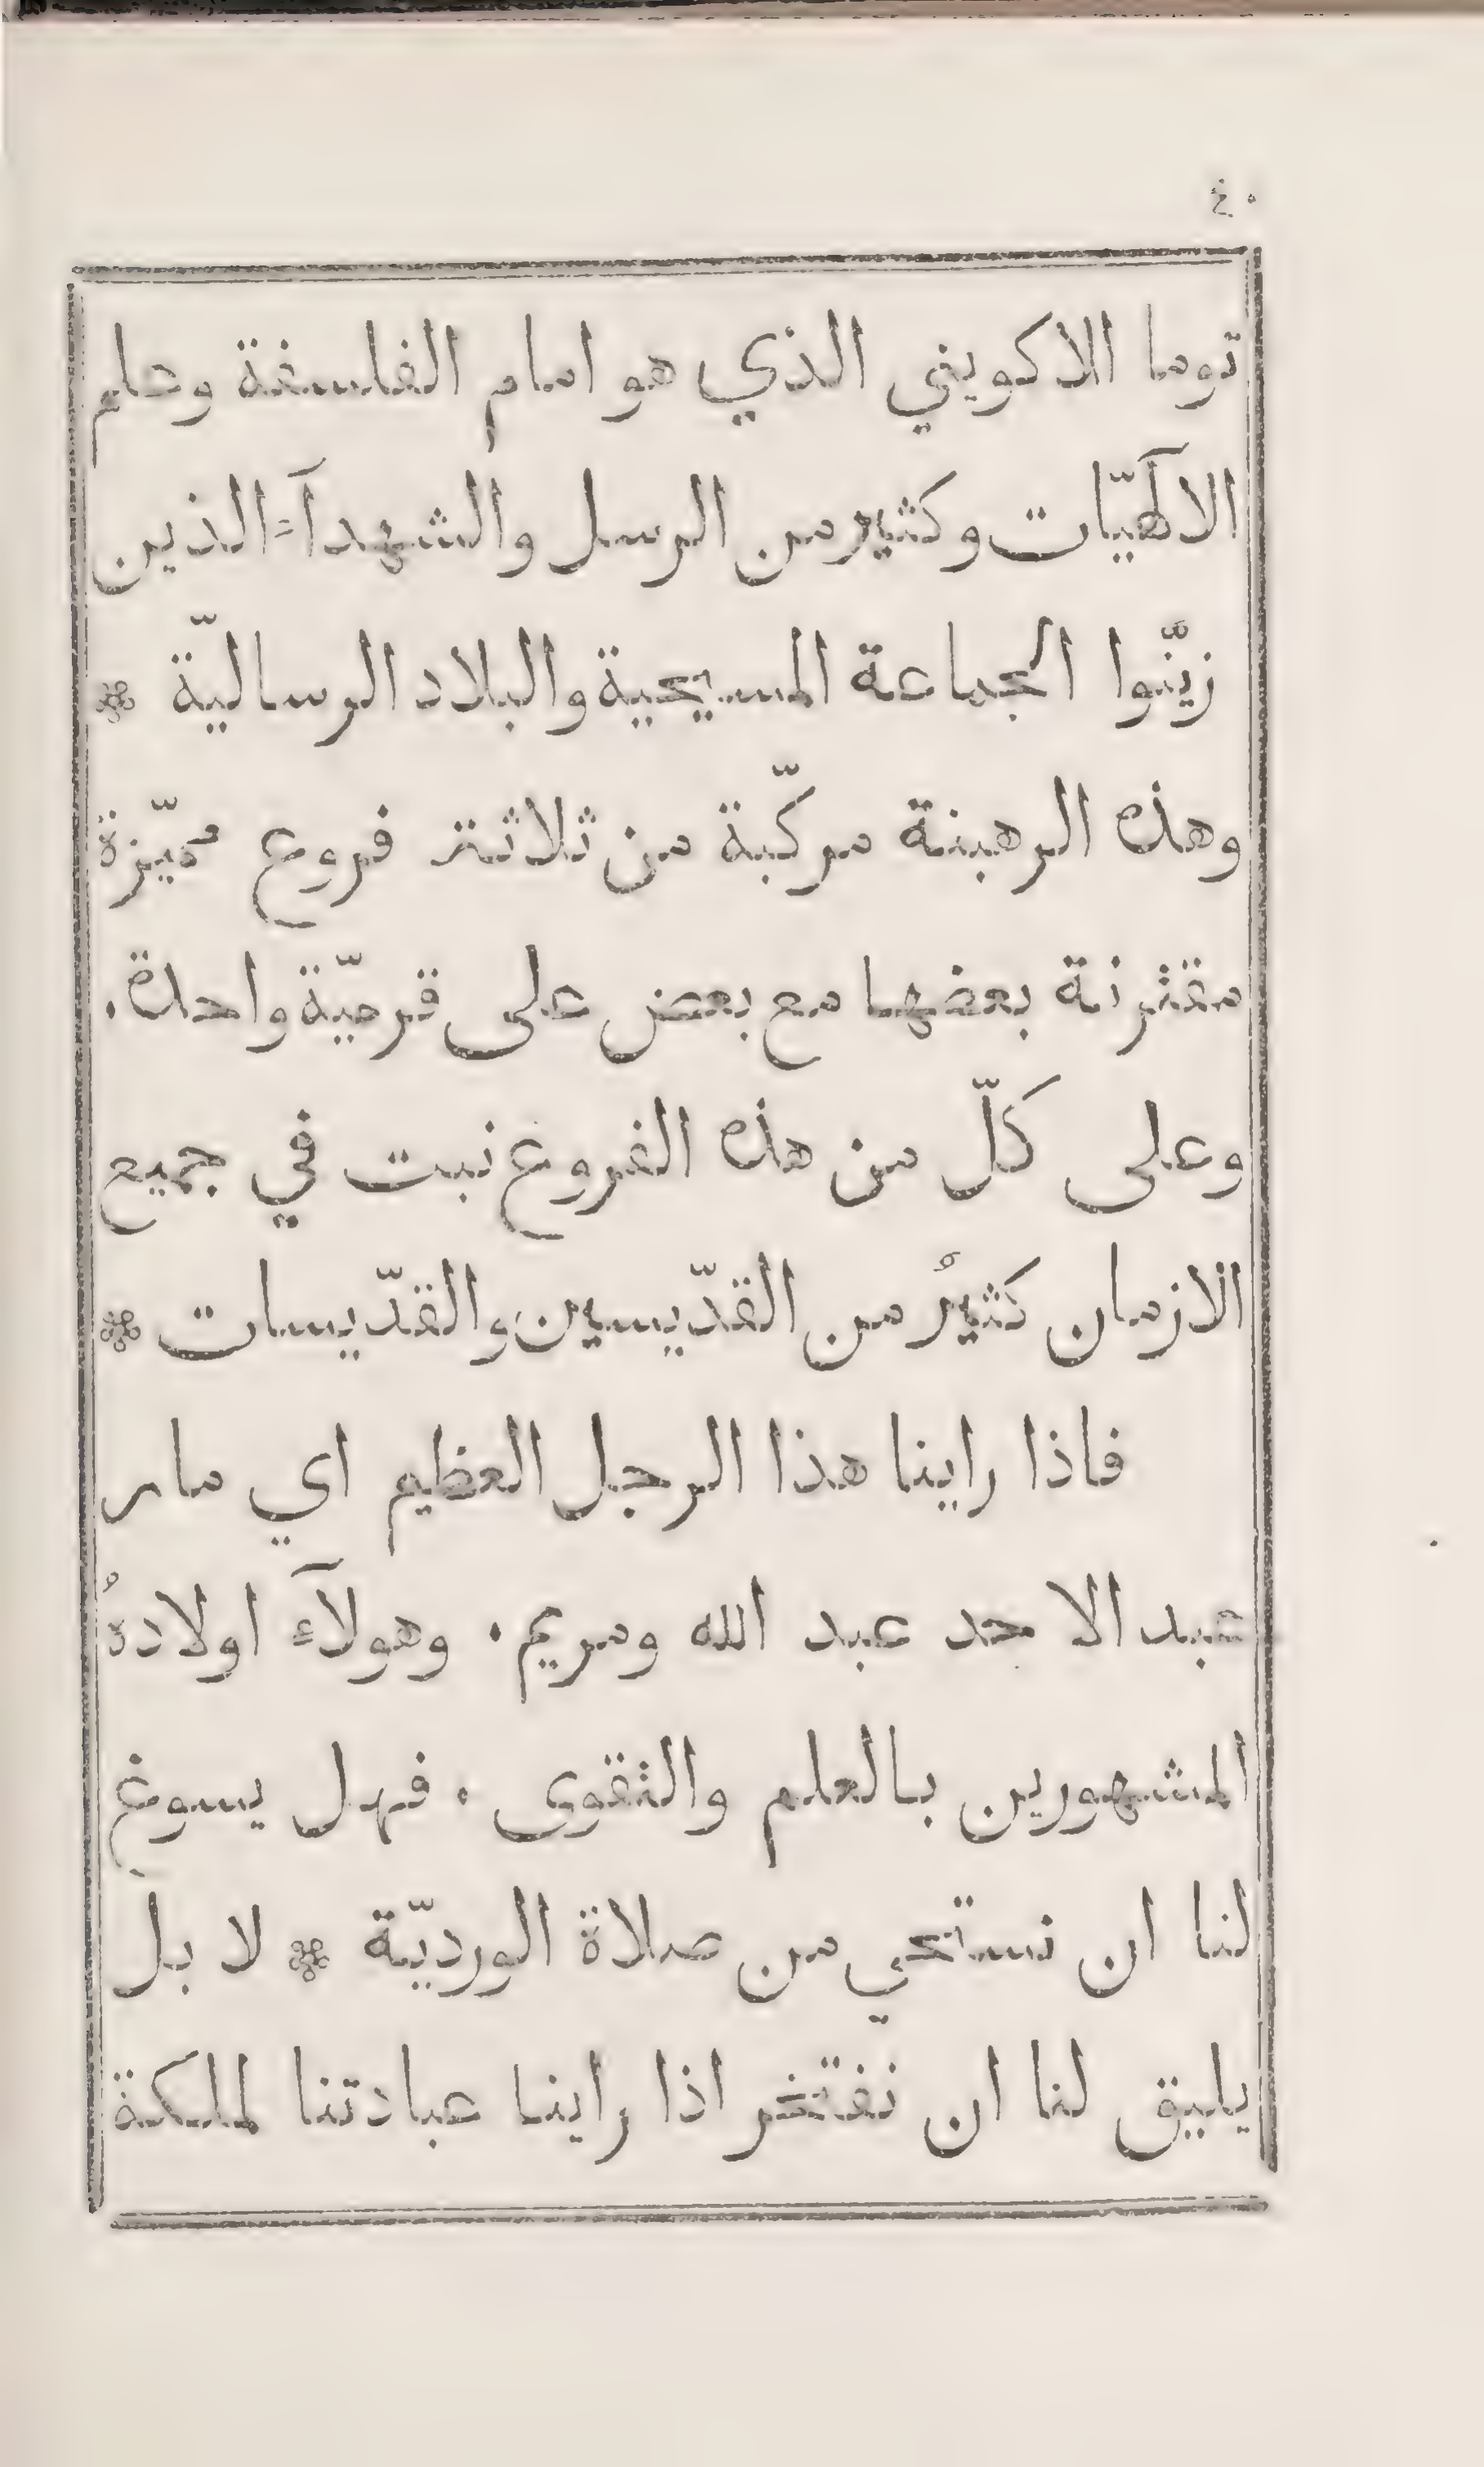 توما الاكويني الذي هو امام الفلسفة وعلم
الالٓهيّات وكثير من الرسل والشهدآء الذين
زيّنوا الجماعة المسيحية والبلاد الرساليّة ❊
وهذه الرهبنة مركّبة من ثلاثة فروع مميّزة
مقترنة بعضها مع بعض على قرميّة واحدة.
وعلى كلّ من هذه الفروع نبت في جميع
الازمان كثيرٌ من القدّيسين والقدّيسات ❊
فاذا راينا هذا الرجل العظيم اي مار
عبد الاحد عبد الله ومريم. وهولآء اولادهُ
المشهورين بالعلم والتقوى. فهل يسوغ
لنا ان نستحي من صلاة الورديّة ❊ لا بل
يليق لنا ان نفتخر اذا راينا عبادتنا لملكة